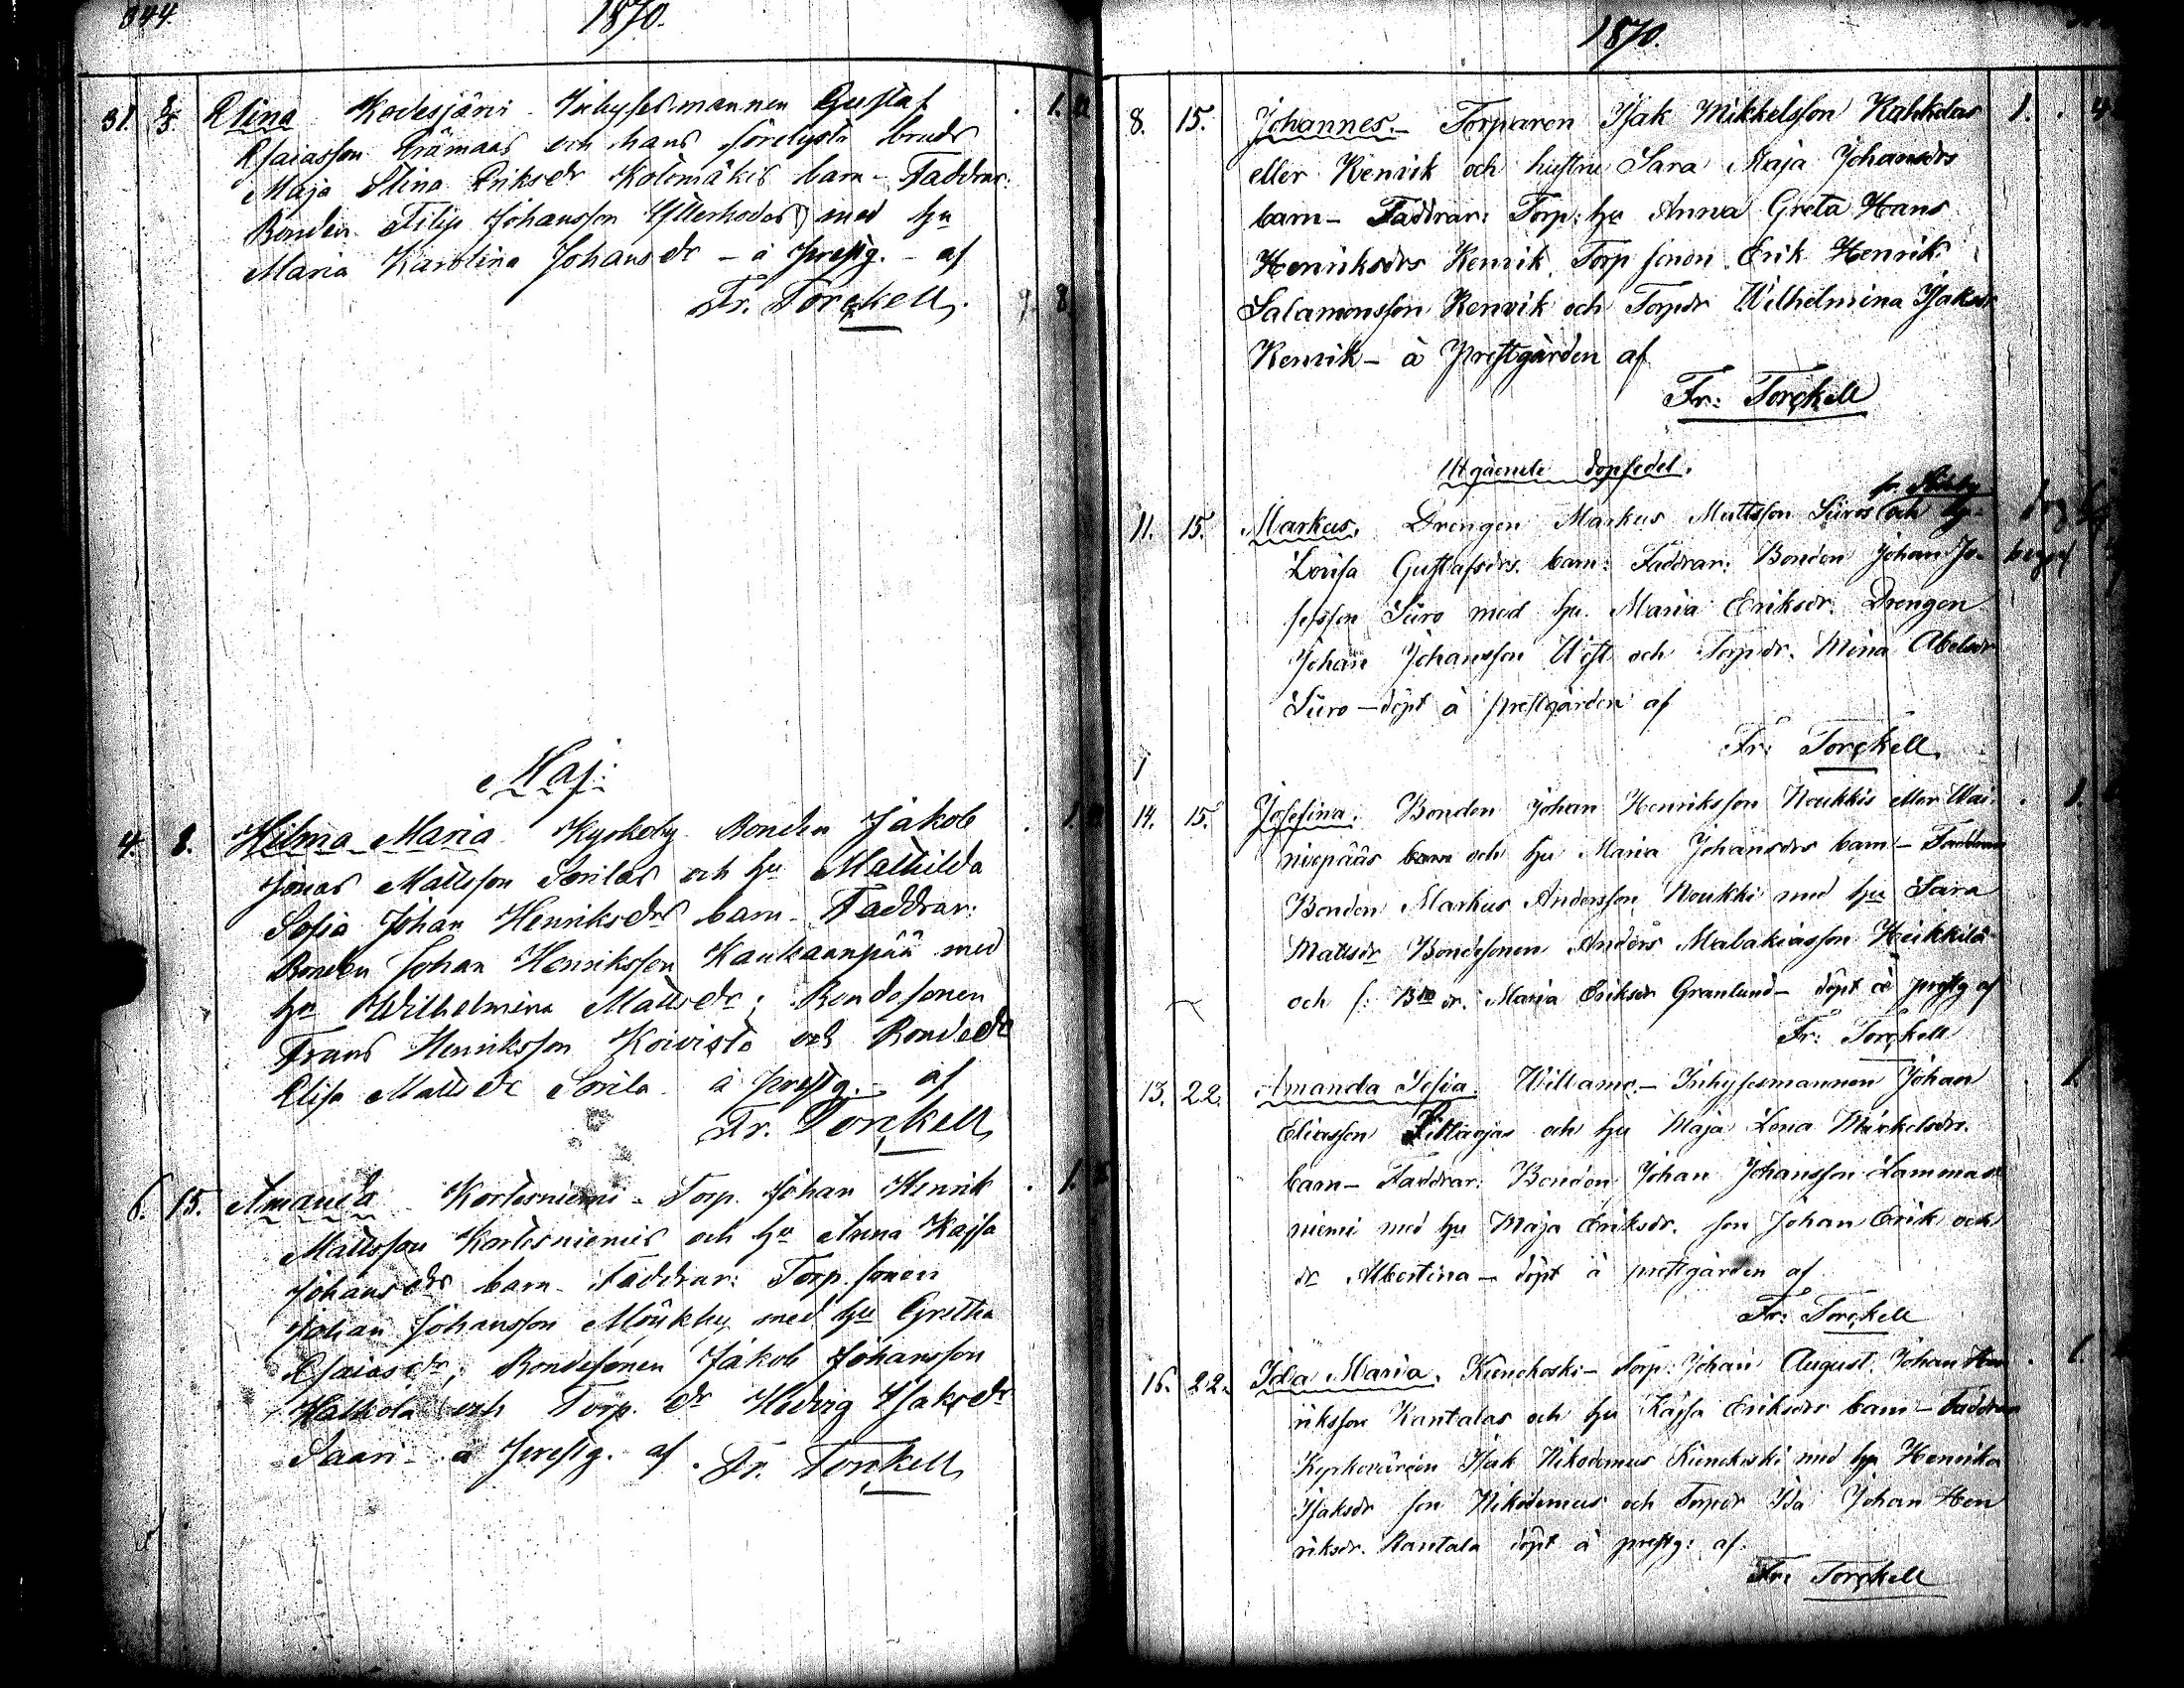 344.
1870.
31. 8/5. Elina Kodesjärvi Inhysesmannen Gustaf . 1.
Esaiasson Trämaas och hans förelysta bruds
Maja Stina Eriksdr Kotomäkis barn - Faddrar:
Bonden Filip Johansson Ytterhodas med hu
Maria Karolina Johansdr - å prestg. - af
Fr. Torckell. 9. 8
Maj:
4. 8. Hilma Maria Kyrkoby Bonden Jakob . 1.
Jonas Mattsson Sorilas och hu Mathilda
Sofia Johan Henriksdrs barn - Faddrar:
Bonden Johan Henriksson Kauhaanpää med
hu Wilhelmina Mattsdr; Bondesonen
Frans Henriksson Koivisto och Bondedr
Elisa Mattsdr Sorila å prestg. - af
Fr. Torckell
6. 15. Amanda Kortesniemi - Torp. Johan Henrik . 1.
Mattsson Kortesniemis och hu Anna Kajsa
Johansdrs barn - Faddrar: Torp. sonen
Johan Johansson Möykky med hu Gretha
Esaiasdr; Bondesonen Jakob Johansson
Halkola och Torp. dr Hedvig Isaksdr
Saari - å prestg. af. Fr. Torckell
1870.
8. 15. Johannes. - Torparen Isak Mikkelsson Kahkolas 1. . 4
eller Kenvik och hustru Sara Maja Johansdrs
barn - Faddrar: Torp: hu Anna Greta Hans
Henriksdrs Kenvik, Torp sonen Erik Henrik
Salamonsson Kenvik och Torpdr Wilhelmina Isaksdr
Kenvik - å Prestgården af
Fr: Torckell
Utgående dopsedel.
11. 15. Markus. Drengen Markus Mattsson Siiros och hu
Lovisa Gustafsdrs. barn: Faddrar: Bonden Johan Jo-
sefsson Siiro med hu. Maria Eriksdr. Drengen
Johan Johansson Uest och Torpdr. Mina Abelsdr
Siiro - döpt å prestgården af
Fr: Torckell
14. 15. Josefina. Bonden Johan Henriksson Noukkis eller Wai- . 1.
niopääs barn och hu Maria Johansdrs barn - Faddrar
Bonden Markus Andersson Noukki med hu Sara
Mattsdr Bondesonen Anders Malakiasson Heikkilä
och f: Bdedr. Maria Eriksdr Granlund - döpt å prestg af
Fr: Torckell
13. 22. Amanda Sofia. Willamo. - Inhysesmannen Johan . 1.
Eliasson Pittaojas och hu Maja Lena Mickelsdrs.
barn - Faddrar: Bonden Johan Johansson Lammas
niemi med hu Maja Eriksdr. son Johan Erik och
dr Albertina - döpt å prestgården af
Fr: Torckell
16. 22. Ida Maria. Kienokoski - Torp: Johan August Johan Hen . 1.
riksson Rantalas och hu Kajsa Eriksdrs barn - Faddrar
Kyrkovärden Isak Nikodemus Kienokoski med hu Henrika
Isaksdr son Nikodemus och Torpdr Ida Johan Hen
riksdr. Rantala döpt å prestg: af.
Fr: Torckell